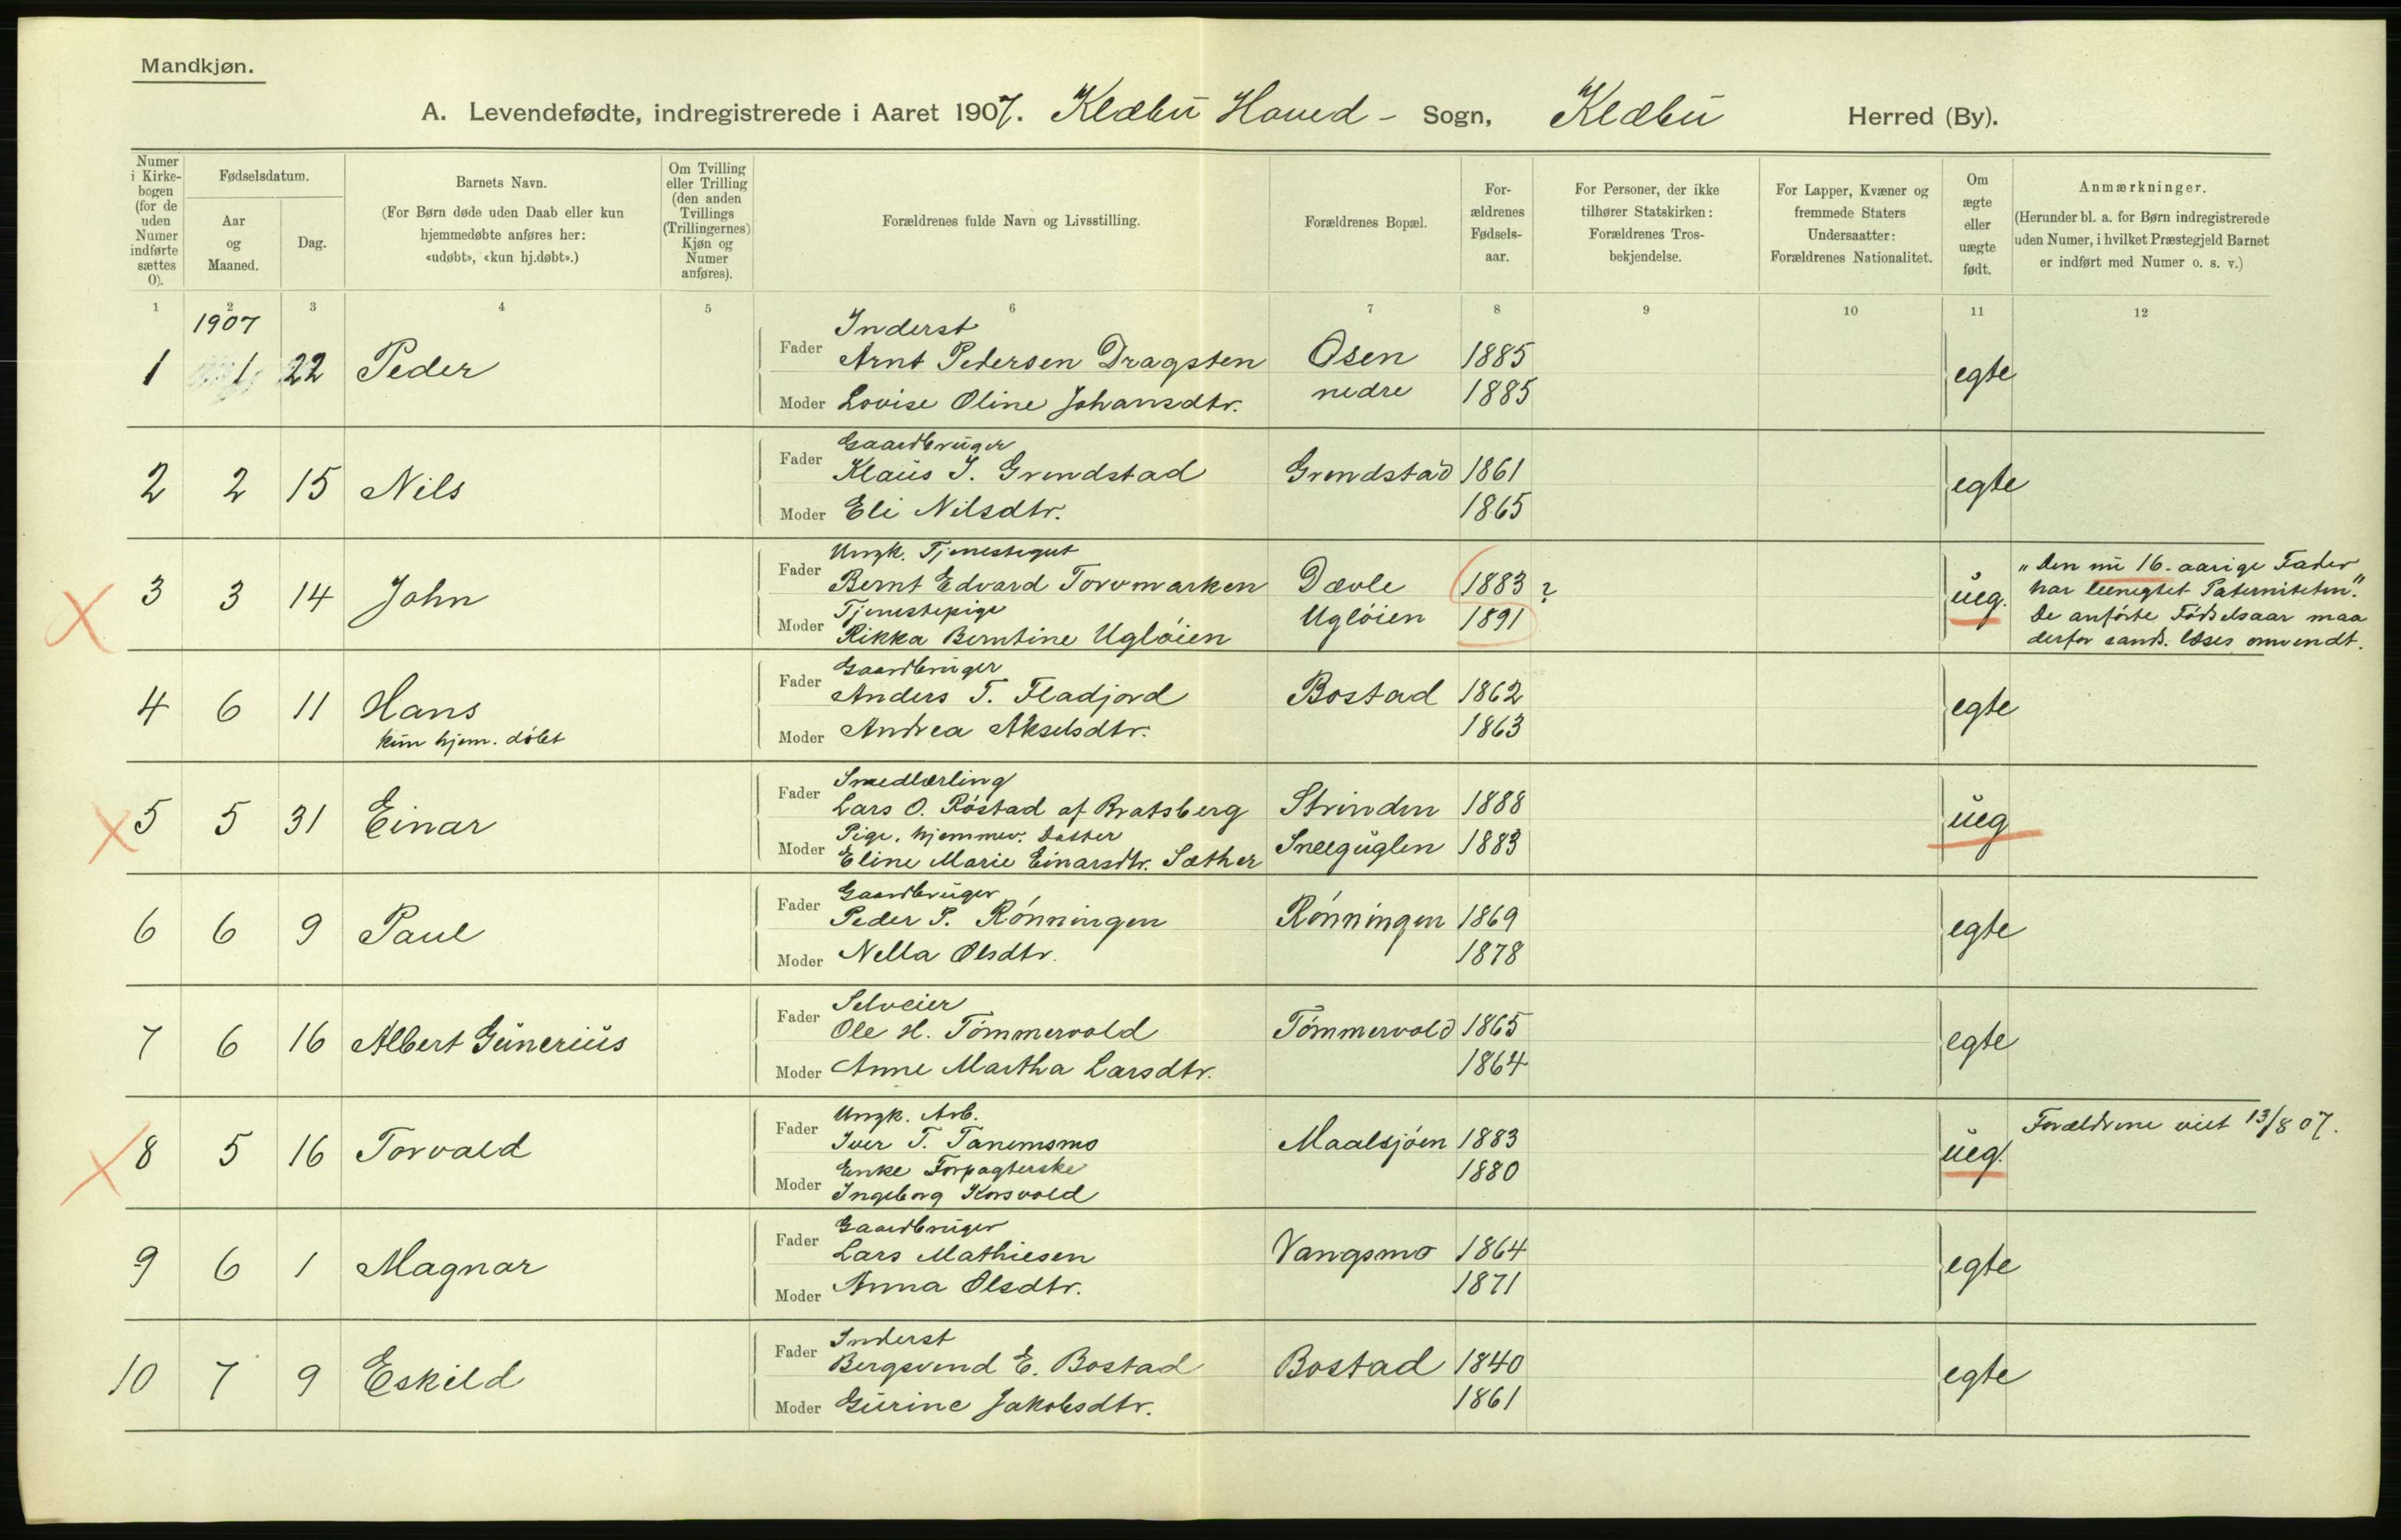 Mandkjøn.
A. Levendefødte, indregistrerede i Aaret 1907. Klæbu Hoved - Sogn, Klæbu Herred (By).
Numer i Kirkebogen (for de uden Numer indførte sættes 0).
Fødselsdatum.
Aar og Maaned.
Dag.
Barnets Navn.
(For Børn døde uden Daab eller kun hjemmedøbte anføres her: «udøbt», «kun hj.døbt».)
Om Tvilling eller Trilling (den anden Tvillings (Trillingernes) Kjøn og Numer anføres).
Forældrenes fulde Navn og Livsstilling.
Forældrenes Bopæl.
For-ældrenes Fødsels-aar.
For Personer, der ikke tilhører Statskirken: Forældrenes Tros-bekjendelse.
For Lapper, Kvæner og fremmede Staters Undersaatter: Forældrenes Nationalitet.
Om ægte eller uægte født.
Anmærkninger.
(Herunder bl. a. for Børn indregistrerede uden Numer, i hvilket Præstegjeld Barnet er indført med Numer o. s. v.)
1 2 3 4 5 6 7 8 9 10 11 12
1907
Inderst
1 1 22 Peder Fader Arnt Pedersen Dragsten Osen 1885 egte
Moder Lovise Oline Johansdtr. nedre 1885
Gaardbruger
2 2 15 Nils Fader Klaus J. Grendstad Grendstad 1861 egte
Moder Eli Nilsdtr. 1865
Ungk. Tjenestegut
3 3 14 John Fader Bernt Edvard Torvmarken Dævle 1883 ? ueg. "Den nu 16. aarige Fader
har benegtet Paterniteten."
Tjenestepige
Moder Rikka Berntine Ugløien Ugløien 1891 De anførte Fødselsaar maa
derfor sands. læses omvendt.
Gaardbruger
4 6 11 Hans Fader Anders T. Fladjord Bostad 1862 egte
kun hjem. døbt Moder Andrea Akselsdtr. 1863
Smedlærling
5 5 31 Einar Fader Lars O. Røstad af Bratsberg Strinden 1888 ueg
Pige, hjemmev. Datter
Moder Eline Marie Einarsdtr. Sæther Sneeguglen 1883
Gaardbruger
6 6 9 Paul Fader Peder P. Rønningen Rønningen 1869 egte
Moder Nella Olsdtr. 1878
Selveier
7 6 16 Albert Gunerius Fader Ole H. Tømmervold Tømmervold 1865 egte
Moder Anne Martha Larsdtr. 1864
Ungk. Arb.
8 5 16 Torvald Fader Iver T. Tanemsmo Maalsjøen 1883 ueg. Forældrene viet 13/8 07.
Enke Forpagterske
Moder Ingeborg Korsvold 1880
Gaardbruger
9 6 1 Magnar Fader Lars Mathiesen Vangsmo 1864 egte
Moder Anna Olsdtr. 1871
Inderst
10 7 9 Eskild Fader Bergsvend E. Bostad Bostad 1840 egte
Moder Gurine Jakobsdtr. 1861